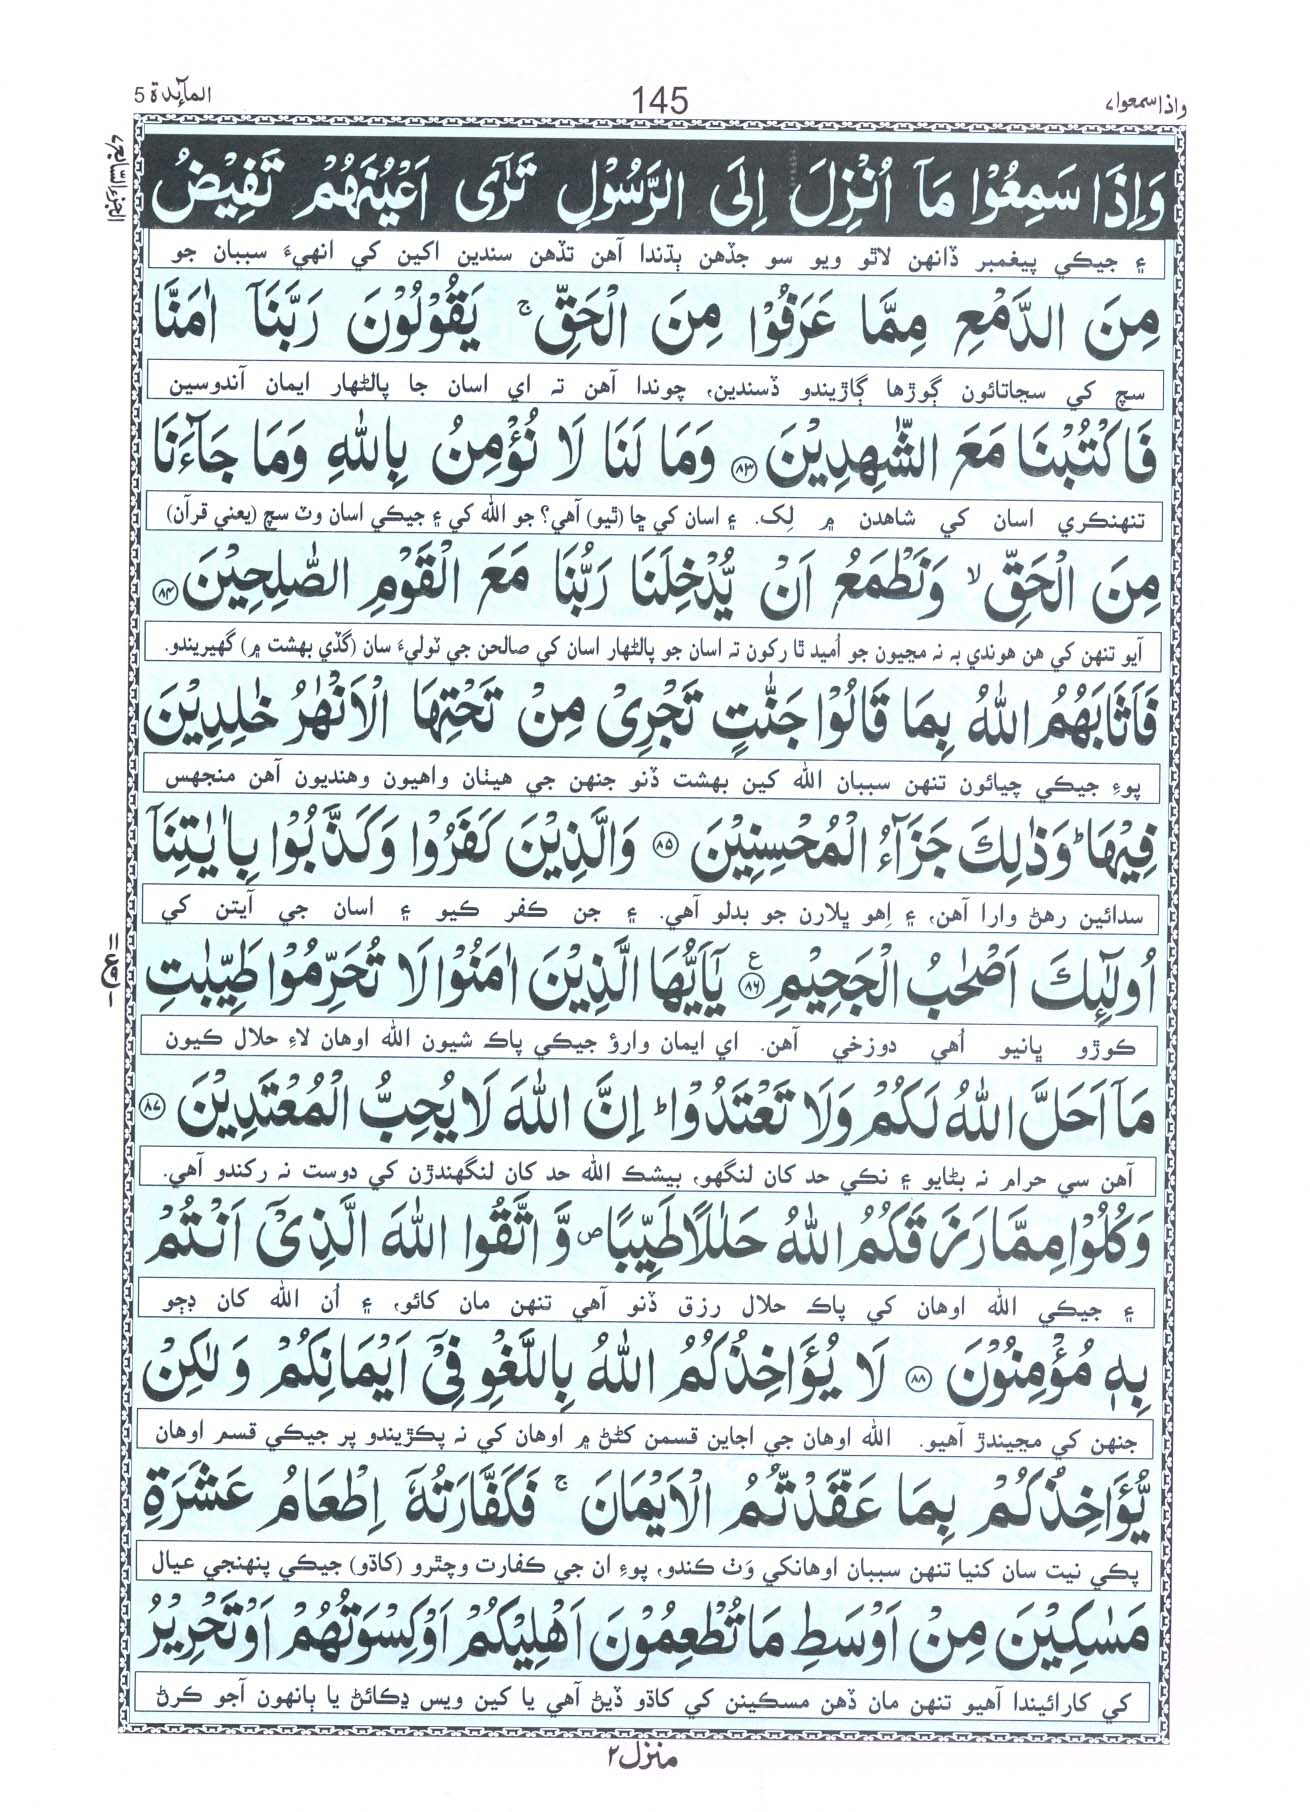 واذا سمعوا ٧ 145 المآئدة 5
الجزء السابع ٧
وَاِذَا سَمِعُوْا مَاۤ اُنْزِلَ اِلَى الرَّسُوْلِ تَرٰۤى اَعْيُنَهُمْ تَفِيْضُ
۽ جيڪي پيغمبر ڏانهن لاٿو ويو سو جڏهن ٻڌندا آهن تڏهن سندين اکين کي انهيءَ سببان جو
مِنَ الدَّمْعِ مِمَّا عَرَفُوْا مِنَ الْحَقِّ ۚ يَقُوْلُوْنَ رَبَّنَاۤ اٰمَنَّا
سچ کي سڃاتائون ڳوڙها ڳاڙيندو ڏسندين، چوندا آهن تہ اي اسان جا پالڻهار ايمان آندوسين
فَاكْتُبْنَا مَعَ الشّٰهِدِيْنَ ﴿۸۳﴾ وَمَا لَنَا لَا نُؤْمِنُ بِاللّٰهِ وَمَا جَآءَنَا
تنهنڪري اسان کي شاهدن ۾ لِک. ۽ اسان کي ڇا (ٿيو) آهي؟ جو الله کي ۽ جيڪي اسان وٽ سچ (يعني قرآن)
مِنَ الْحَقِّ ۙ وَنَطْمَعُ اَنْ يُّدْخِلَنَا رَبُّنَا مَعَ الْقَوْمِ الصّٰلِحِيْنَ ﴿۸۴﴾
آيو تنهن کي هن هوندي بہ نہ مڃيون جو اُميد ٿا رکون تہ اسان جو پالڻهار اسان کي صالحن جي ٽوليءَ سان (گڏي بهشت ۾) گهيريندو.
فَاَثَابَهُمُ اللّٰهُ بِمَا قَالُوْا جَنّٰتٍ تَجْرِىْ مِنْ تَحْتِهَا الْاَنْهٰرُ خٰلِدِيْنَ
پوءِ جيڪي چيائون تنهن سببان الله کين بهشت ڏنو جنهن جي هيٺان واهيون وهنديون آهن منجهس
فِيْهَا ؕ وَذٰلِكَ جَزَآءُ الْمُحْسِنِيْنَ ﴿۸۵﴾ وَالَّذِيْنَ كَفَرُوْا وَكَذَّبُوْا بِاٰيٰتِنَاۤ
سدائين رهڻ وارا آهن، ۽ اِهو ڀلارن جو بدلو آهي. ۽ جن ڪفر ڪيو ۽ اسان جي آيتن کي
اُولٰٓئِكَ اَصْحٰبُ الْجَحِيْمِ ﴿۸۶﴾ ع يٰۤاَيُّهَا الَّذِيْنَ اٰمَنُوْا لَا تُحَرِّمُوْا طَيِّبٰتِ
ڪوڙو ڀانيو اُهي دوزخي آهن. اي ايمان وارؤ جيڪي پاڪ شيون الله اوهان لاءِ حلال ڪيون
مَاۤ اَحَلَّ اللّٰهُ لَكُمْ وَلَا تَعْتَدُوْا ؕ اِنَّ اللّٰهَ لَا يُحِبُّ الْمُعْتَدِيْنَ ﴿۸۷﴾
آهن سي حرام نہ بڻايو ۽ نڪي حد کان لنگهو، بيشڪ الله حد کان لنگهندڙن کي دوست نہ رکندو آهي.
وَكُلُوْا مِمَّا رَزَقَكُمُ اللّٰهُ حَلٰلًا طَيِّبًا ۪ وَّ اتَّقُوا اللّٰهَ الَّذِىْۤ اَنْتُمْ
۽ جيڪي الله اوهان کي پاڪ حلال رزق ڏنو آهي تنهن مان کائو، ۽ اُن الله کان ڊڄو
بِهٖ مُؤْمِنُوْنَ ﴿۸۸﴾ لَا يُؤَاخِذُكُمُ اللّٰهُ بِاللَّغْوِ فِىْۤ اَيْمَانِكُمْ وَلٰكِنْ
جنهن کي مڃيندڙ آهيو. الله اوهان جي اجاين قسمن کڻڻ ۾ اوهان کي نہ پڪڙيندو پر جيڪي قسم اوهان
يُّؤَاخِذُكُمْ بِمَا عَقَّدْتُّمُ الْاَيْمَانَ ۚ فَكَفَّارَتُهٗۤ اِطْعَامُ عَشَرَةِ
پڪي نيت سان کنيا تنهن سببان اوهانکي وَٺ ڪندو، پوءِ ان جي ڪفارت وچٿرو (کاڌو) جيڪي پنهنجي عيال
مَسٰكِيْنَ مِنْ اَوْسَطِ مَا تُطْعِمُوْنَ اَهْلِيْكُمْ اَوْ كِسْوَتُهُمْ اَوْ تَحْرِيْرُ
کي کارائيندا آهيو تنهن مان ڏهن مسڪينن کي کاڌو ڏيڻ آهي يا کين ويس ڍڪائڻ يا ٻانهون آجو ڪرڻ
منزل ٢